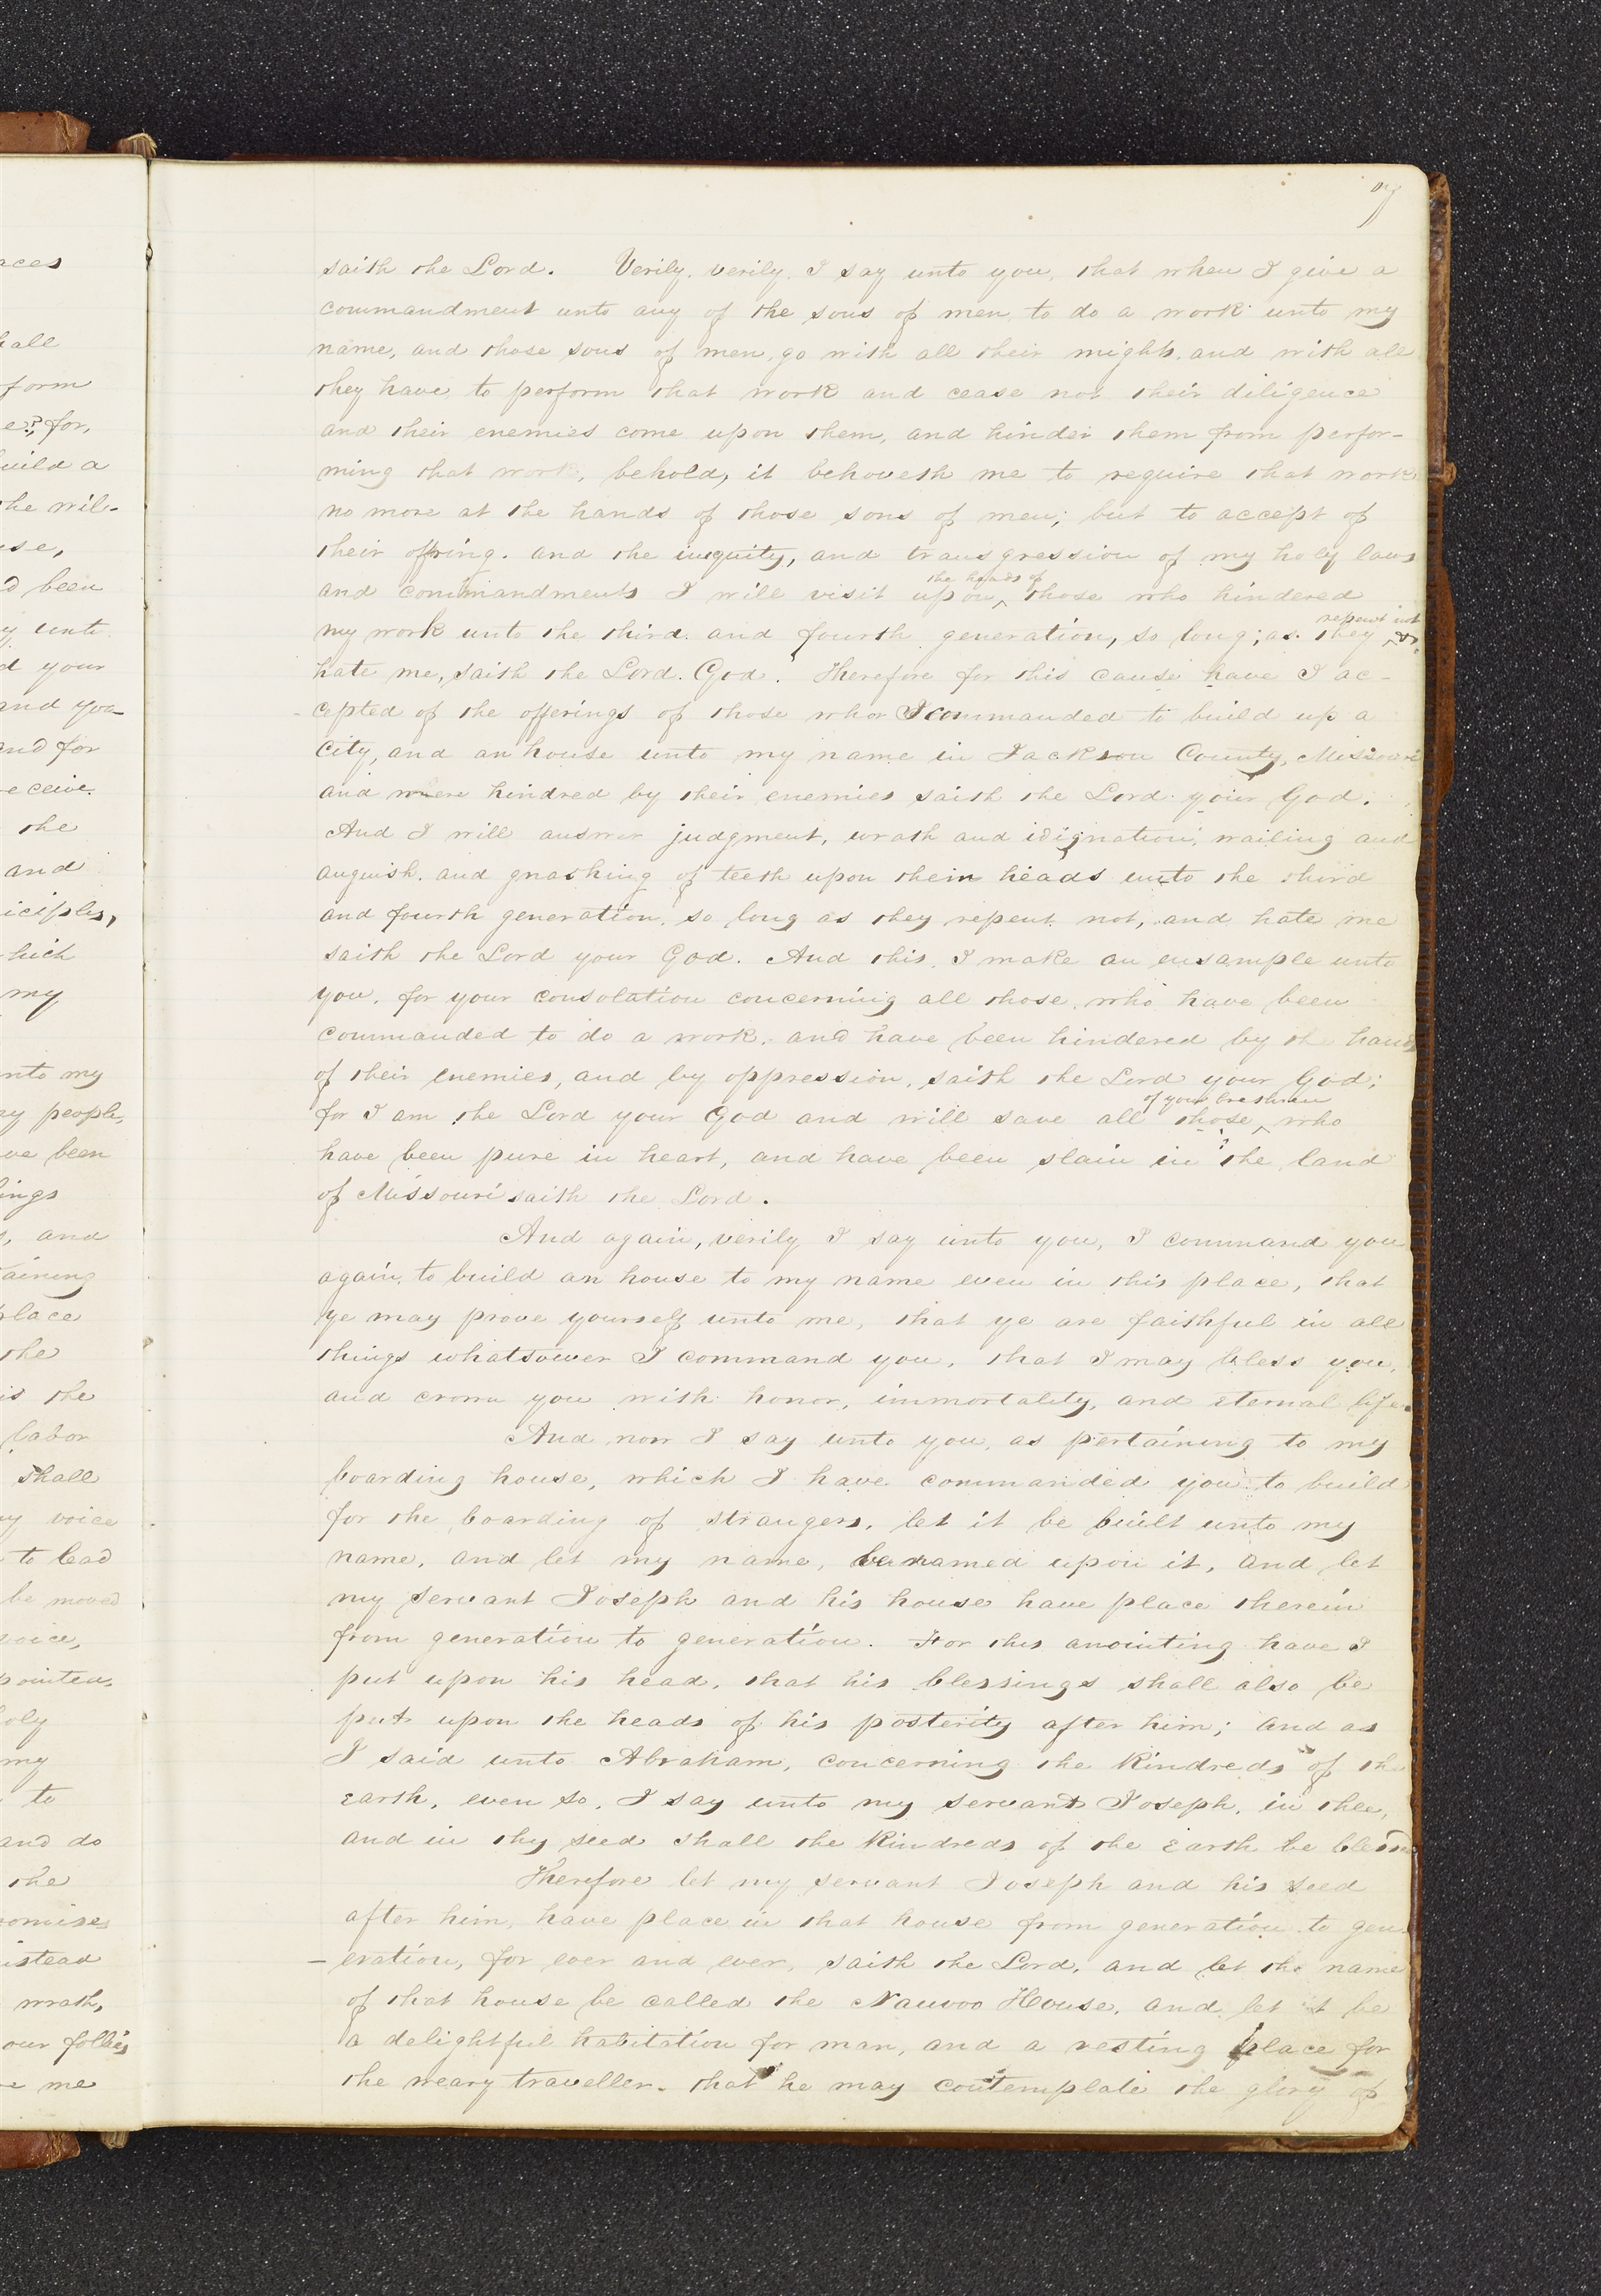 saith the Lord. Verily, verily, I say unto you, that when I give a
commandment unto any of the sons of men, to do a work unto my
name, and those sons of men, go with all their might, and with all
they have, to perform that work and cease not their diligence
and their enemies come upon them, and hinder them from perfor-
ming that work, behold, it behoveth me to require that work
no more at the hands of those sons of men; but to accept of
their offring. and the iniquity, and transgression of my holy laws
the heads of
and commandments I will visit upon ^ those who hindered
repent not
my work unto the third. and fourth generation, so long; as. they ^ &
hate me, saith the Lord. God. Therefore for this cause have I ac-
cepted of the offerings of those whom I commanded to build up a
City, and an house unto my name in Jackson County, Missouri
and where hindred by their enemies saith the Lord your God.
And I will answer judgment, wrath and idignation, wailing and
anguish. and gnashing of teeth upon their heads unto the third
and fourth generation, so long as they repent not, and hate me
saith the Lord your God. And this, I make an ensample unto
you, for your consolation concerning all those, who have been
commanded to do a work, and have been hindered by the hands
of their enemies, and by oppression, saith the Lord your God;
of your brethren
for I am the Lord your God and will save all those ^ who
have been pure in heart, and have been slain in the land
of Missouri saith the Lord.
And again, verily I say unto you, I command you
again, to build an house to my name even in this place, that
ye may prove yourself unto me, that ye are faithful in all
things whatsoever I command you, that I may bless you,
and crown you with honor, immortality, and eternal life.
And now I say unto you, as pertaining to my
boarding house, which I have commanded you to build
for the boarding of strangers, let it be built unto my
name, and let my name, be named upon it, and let
my servant Joseph and his house have place therein
from generation to generation. For this anointing have I
put upon his head, that his blessings shall also be
put upon the heads of his posterity after him; and as
I said unto Abraham, concerning the Kindreds of the
earth, even so, I say unto my servant Joseph, in thee,
and in thy seed shall the Kindreds of the Earth be blessed
Therefore let my servant Joseph and his seed
after him, have place in that house from generation to gen-
-eration, for ever and ever, saith the Lord, and let the name
of that house be called the Nauvoo House, and let it be
a delightful habitation for man, and a resting place for
the weary traveller. that he may contemplate the glory of